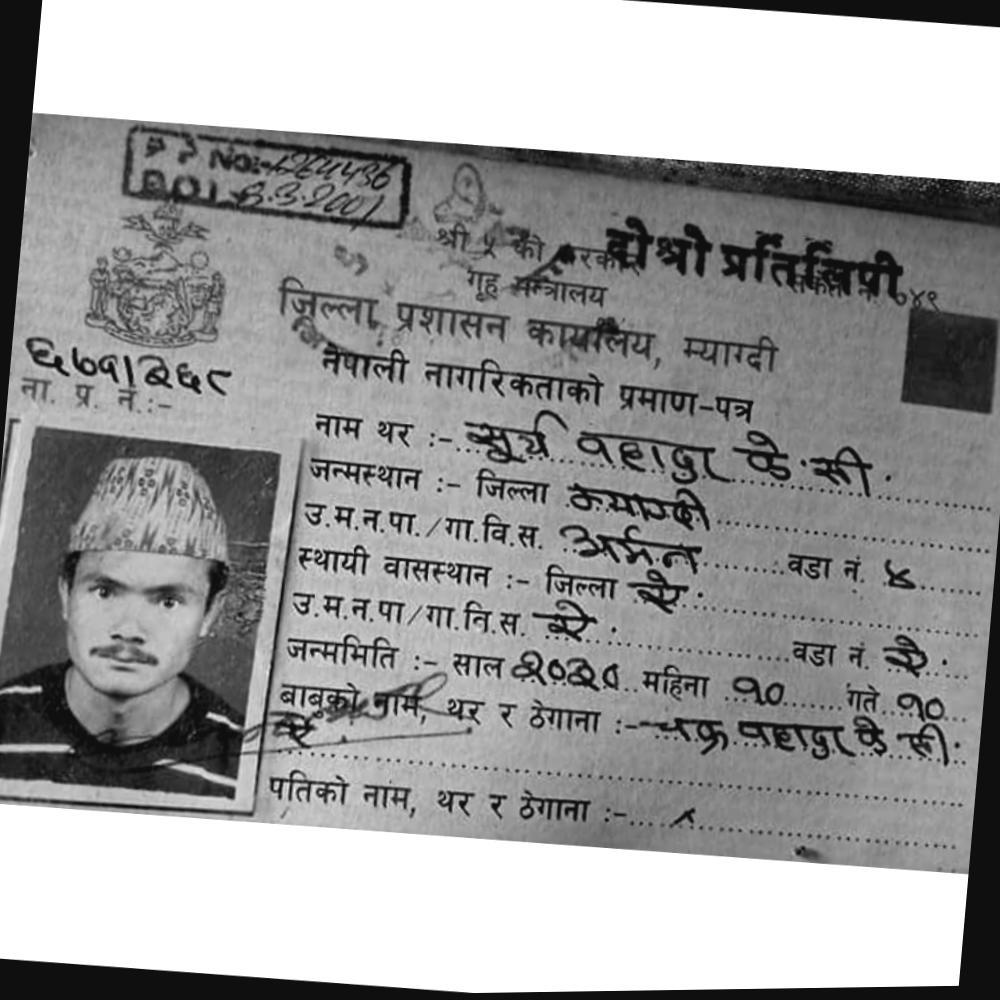 P P No:- 1264436
D.O.I. -8.3.2001
श्री ५ को सरकार
दोश्रो प्रतिलिपी
गृह मन्त्रालय
जिल्ला प्रशासन कार्यालय, म्याग्दी
नेपाली नागरिकताको प्रमाण-पत्र
६७१२६८
ना. प्र. नं.:-
नाम थर :- सूर्य वहादुर के.सी.
जन्मस्थान :- जिल्ला म्याग्दी
उ.म.न.पा./गा.वि.स. अर्मन वडा नं. ४
स्थायी वासस्थान :- जिल्ला ऐ.
उ.म.न.पा/गा.वि.स. ऐ. वडा नं. ऐ.
जन्ममिति :- साल २०३० महिना १० गते १०
बाबुको नाम, थर र ठेगाना :- चक्र वहादुर के. सी.
ऐ.
पतिको नाम, थर र ठेगाना :- x